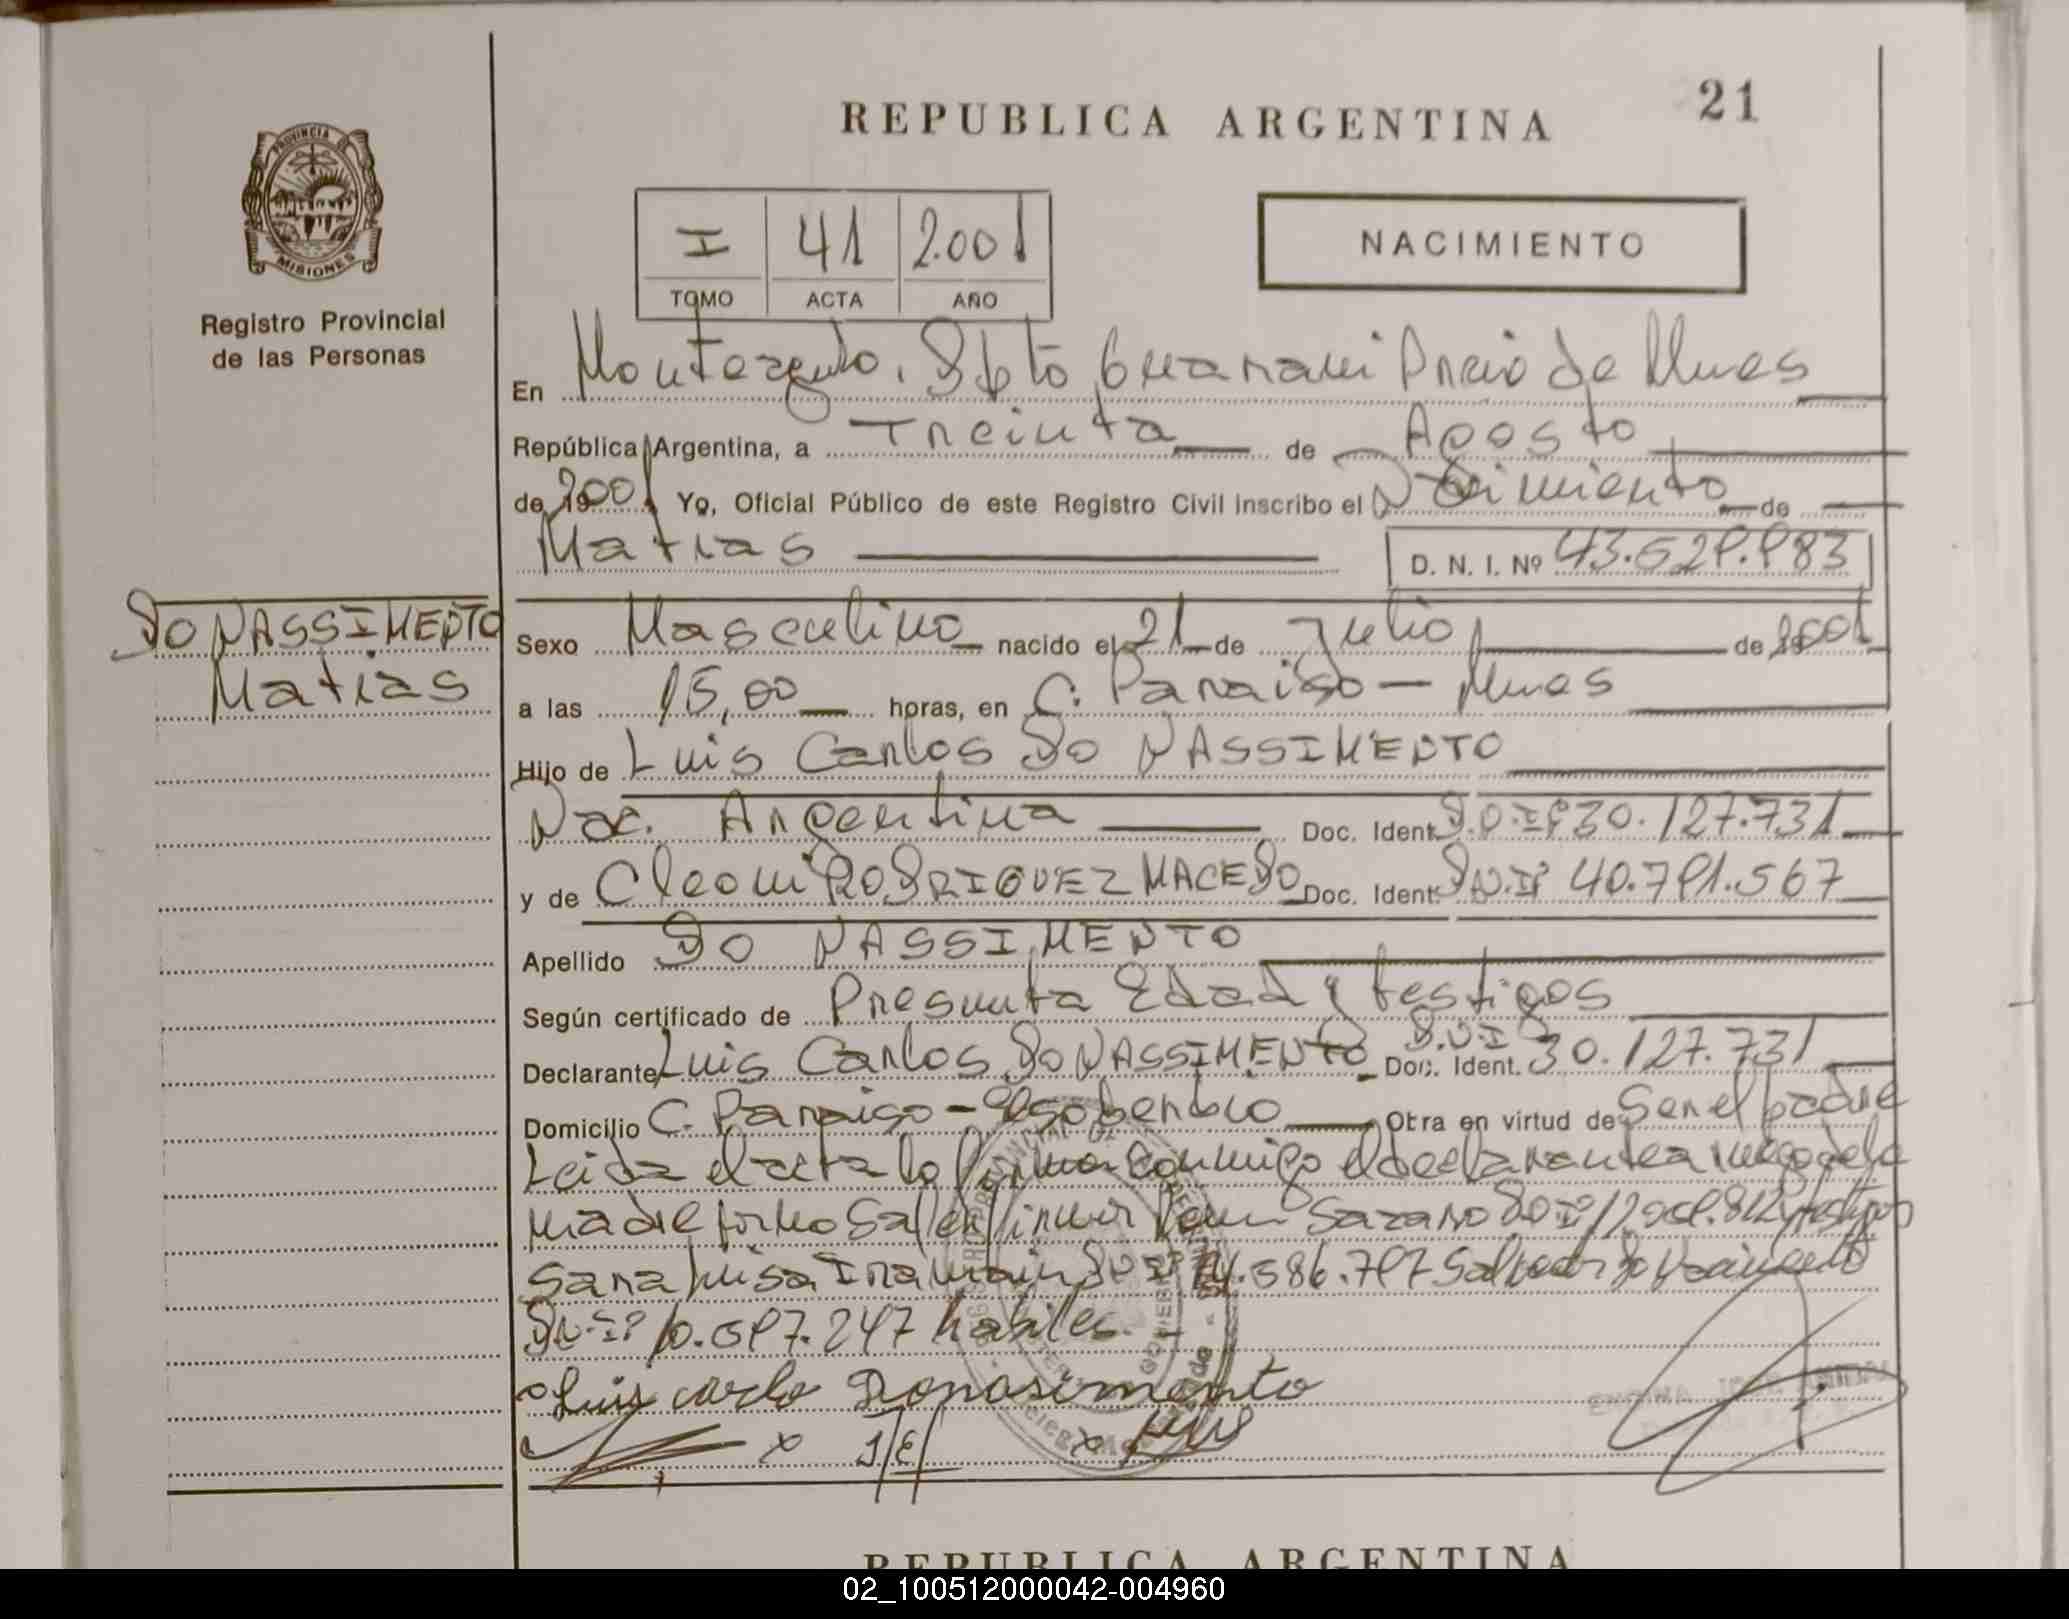 REPUBLICA ARGENTINA
21
PROVINCIA DE
MISIONES
Registro Provincial
de las Personas
I 41 2.001
TOMO ACTA AÑO
NACIMIENTO
En Monteagudo. Dpto Guarani Pncia de Mnes
República Argentina, a Treinta de Agosto
de 2001 Yo, Oficial Público de este Registro Civil inscribo el Nacimiento de
Matias D. N. I. Nº 43.529.983
DO NASSIMENTO
Matias
Sexo Masculino nacido el 21 de Julio de 2001
a las 15,00 horas, en C. Paraiso - Mnes
Hijo de Luis Carlos DO NASSIMENTO
Nac. Argentina Doc. Ident. D.N.Iº 30.127.731
y de Cleoni RODRIGUEZ MACEDO Doc. Ident. D.N.Iº 40.791.567
Apellido DO NASSIMENTO
Según certificado de Presunta Edad y testigos
Declarante Luis Carlos DO NASSIMENTO Doc. Ident. D.N.I 30.127.731
Domicilio C. Paraiso - Obra en virtud de Ser el padre
Leida el acta la firma conmigo el declarante a ruego de la
madre firmo testigos
Sara Luisa
D.N.Iº 10.597.247 habiles.
Luis carlo Donasimento
REPUBLICA ARGENTINA
02_100512000042-004960